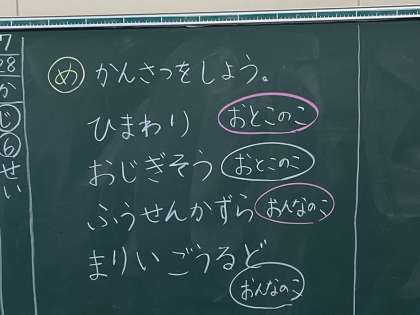 7
28
か
じ
6
せ
い
め かんさつをしよう。
ひまわり おとこのこ
おじぎそう おとこのこ
ふうせんかずら おんなのこ
まりいごうるど
おんなのこ